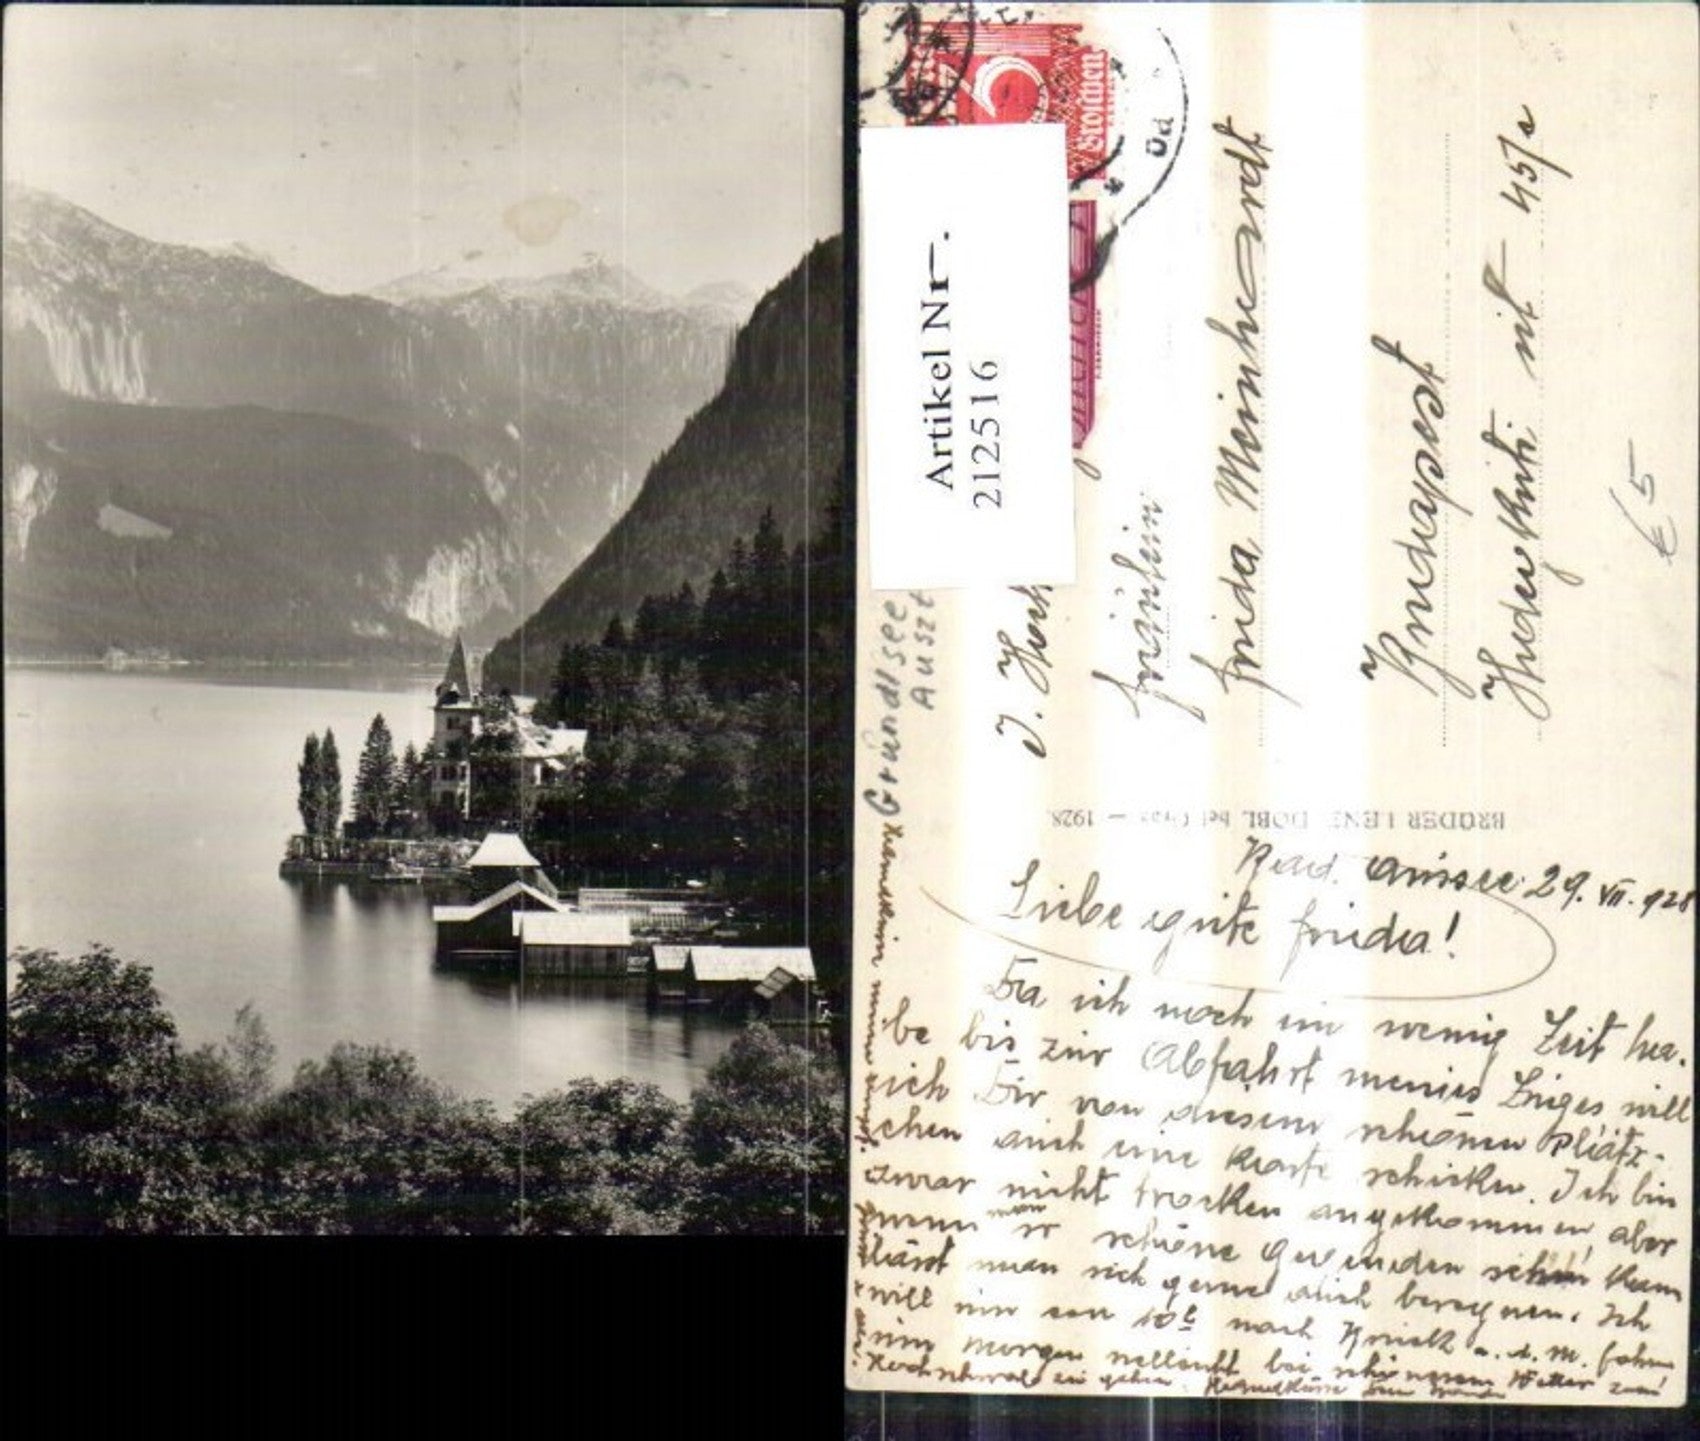 Groschen
Artikel Nr.
212516
Grundlsee
Auszt
Fräulein
Frida Meinhardt
Budapest
45/a
€ 5
BRÜDER LENZ DOBL bei Graz — 1928
Bad Aussee 29. VII. 928
Liebe gute Frieda!
Da ich noch ein wenig Zeit ha-
be bis zur Abfahrt meines Zuges will
ich Dir von diesem schönen Plätz-
chen auch eine Karte schicken. Ich bin
zwar nicht trocken angekommen, aber
wenn man so schöne Gegenden sehen kann
lässt man sich gerne auch beregnen. Ich
will nun um 10h nach Bruck a. d. M. fahren
um morgen vielleicht bei schönerem Wetter zum
Hochschwab zu gehen.